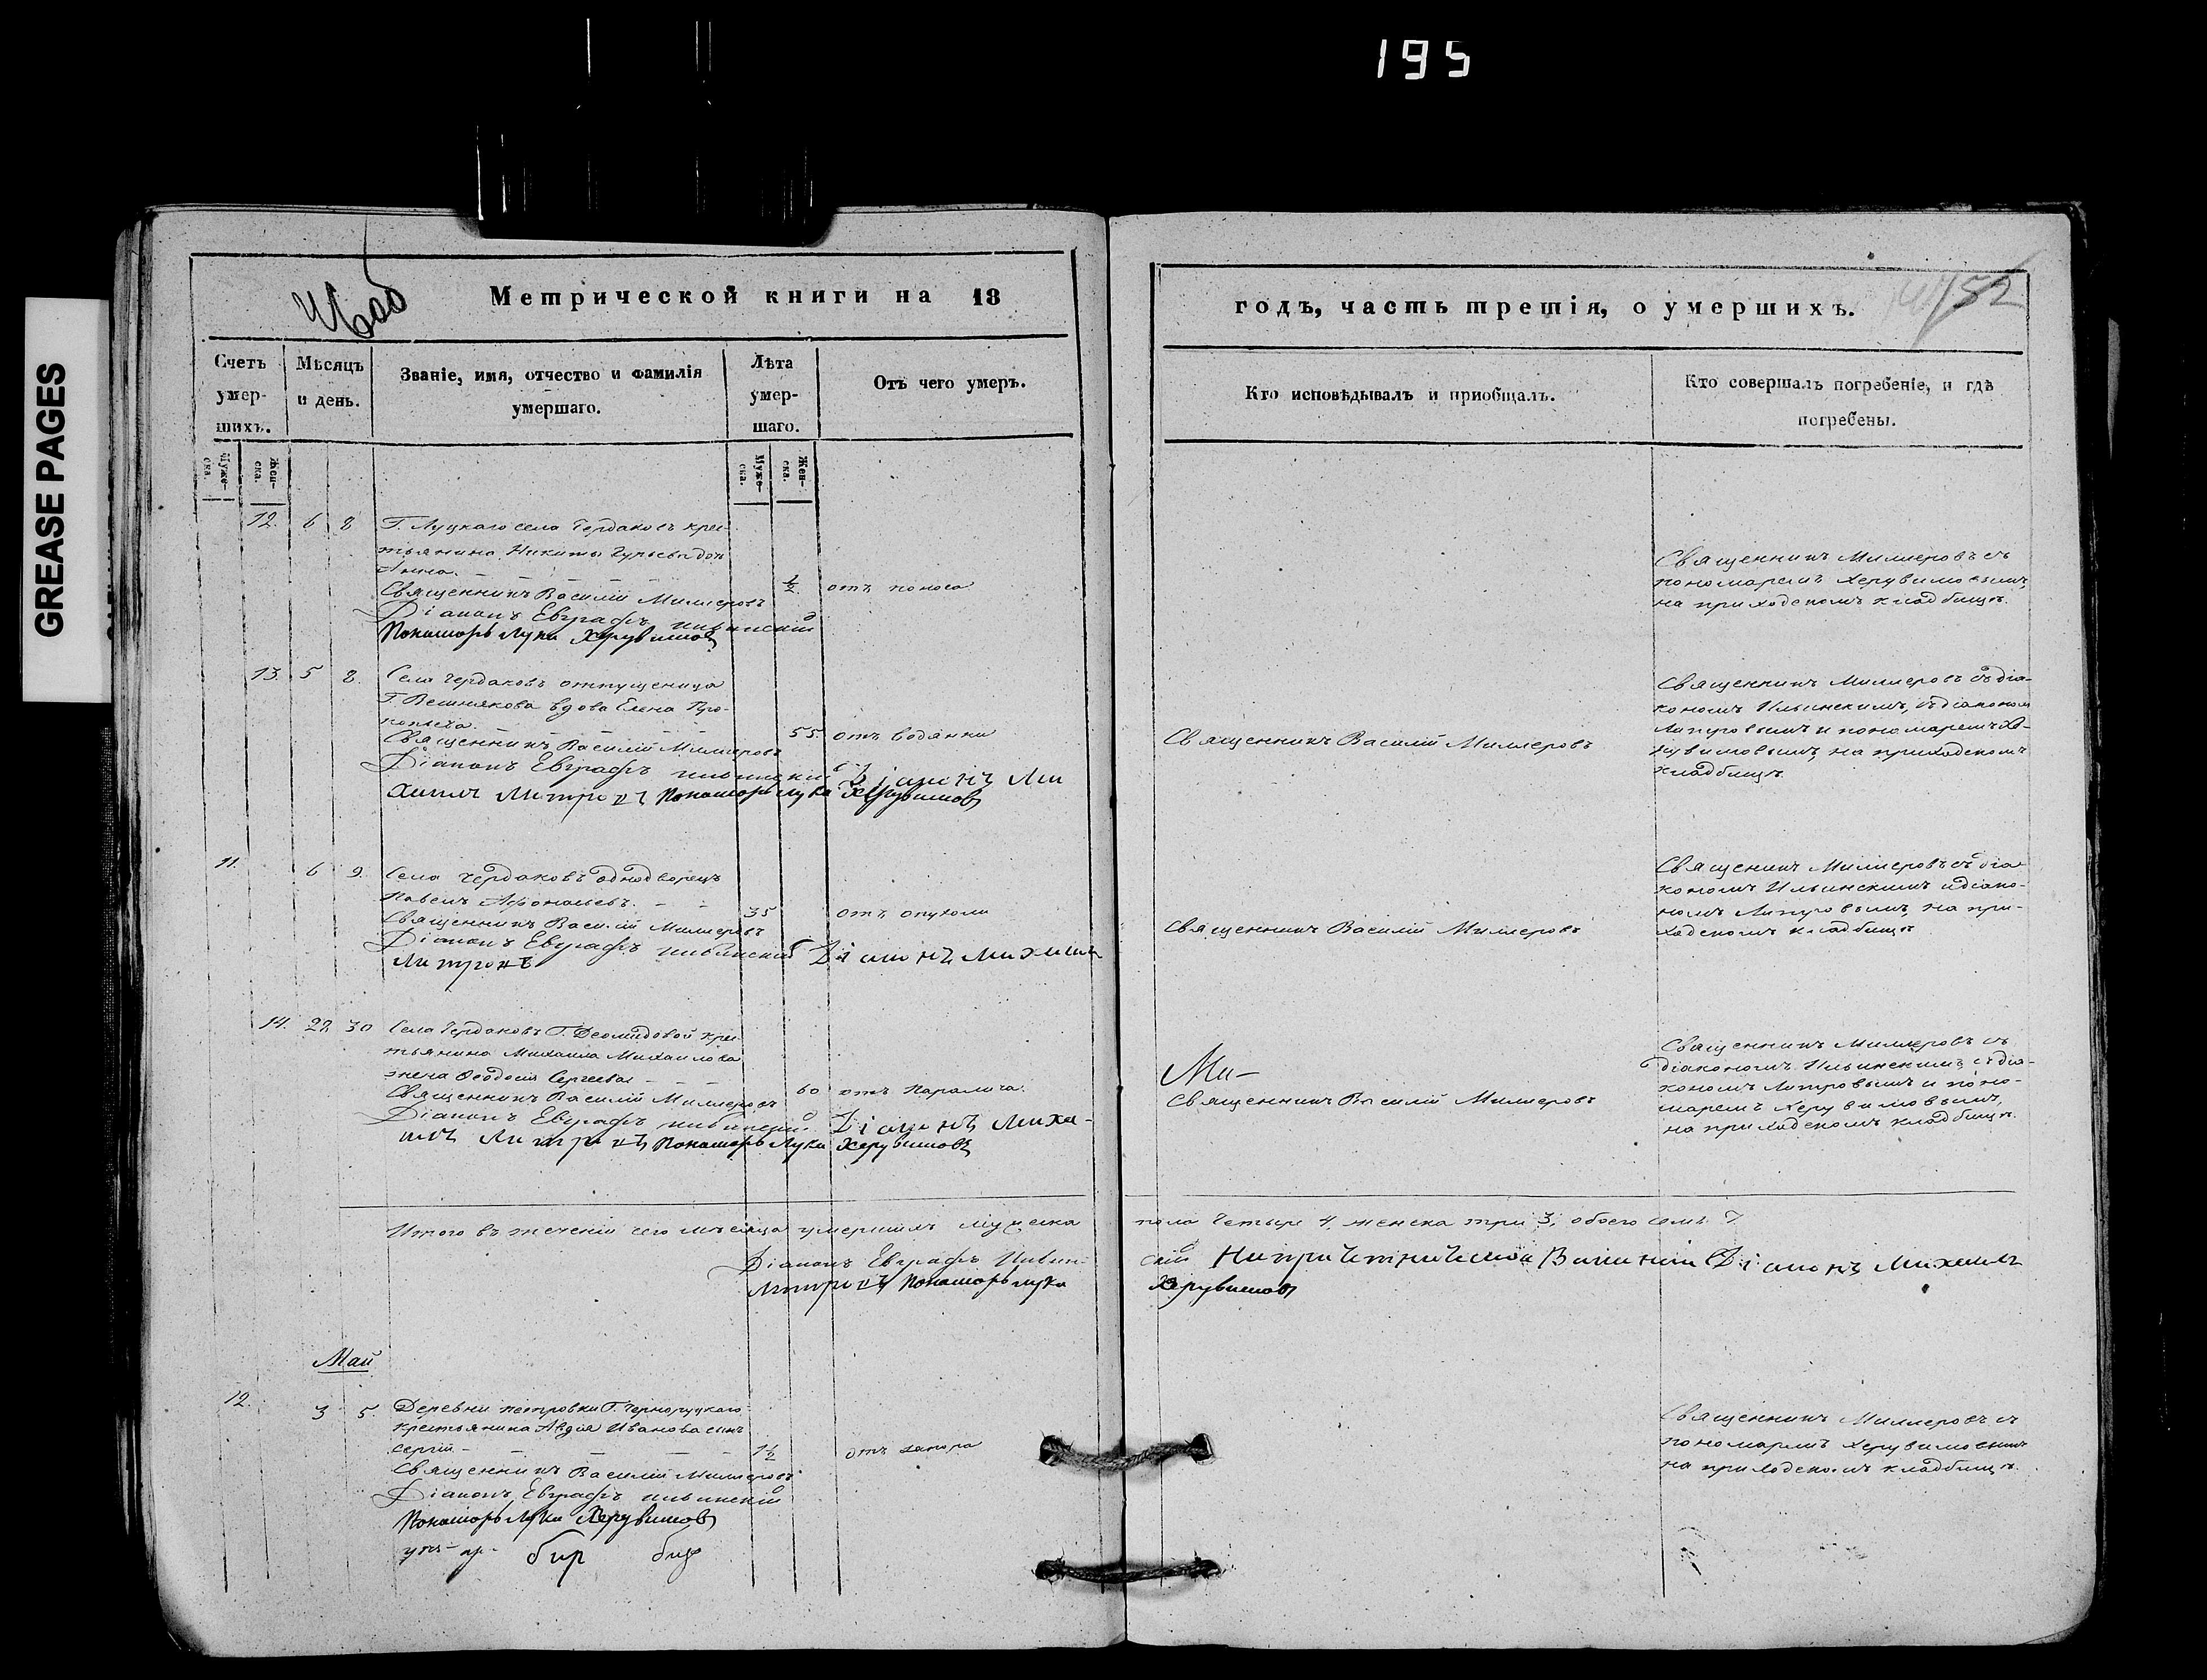 195
GREASE PAGES
Метрической книги на 18
годъ, часть третія, о умершихъ.
152
Счетъ умер-шихъ.
Мѣсяцъ и день.
Званіе, имя, отчество и фамилія умершаго.
Лѣта умер-шаго.
Отъ чего умеръ.
Кто исповѣдывалъ и приобщалъ.
Кто совершалъ погребеніе, и гдѣ погребены.
Муже-ска.
Жен-ска.
Муже-ска.
Жен-ска.
12. 6 8 Г. Луцкаго села Чердаковъ крес-
тьянина Никиты Гурьева доч
Анна
Священникъ Василій Миллеровъ ½ отъ поноса
Діаконъ Евграфъ Ильинскій
Пономарь Лука Херувимовъ
Священникъ Миллеровъ съ
пономаремъ Херувимовымъ,
на приходскомъ кладбищѣ.
13. 5 8. Села Чердаковъ отпущеница
Г. Вешнякова вдова Елена Про-
копьева
Священникъ Василій Миллеровъ 55. отъ водянки
Діаконъ Евграфъ Ильинскій Діаконъ Ми
хаилъ Пономарь Лука Херувимовъ
Священникъ Василій Миллеровъ
Священникъ Миллеровъ съ діа-
кономъ Ильинскимъ, съ діакономъ
и пономаремъ Хе-
рувимовымъ, на приходскомъ
кладбищѣ
11. 6 9. Села Чердаковъ однодворецъ
Павелъ Афонасьевъ. 35 отъ опухоли
Священникъ Василій Миллеровъ
Діаконъ Евграфъ Ильинскій Діаконъ Михаилъ
Священникъ Василій Миллеровъ
Священникъ Миллеровъ съ діа
кономъ Ильинскимъ и діако-
номъ на при-
ходскомъ кладбищѣ
14. 28. 30 Села Чердаковъ Г. Деомидовой крес-
тьянина Михаила Михаилова
жена Ѳеодосія Сергеева
Священникъ Василій Миллеровъ 60 отъ паралича.
Діаконъ Евграфъ Ильинскій Діаконъ Миха-
илъ Пономарь Лука Херувимовъ
Ми-
Священникъ Василій Миллеровъ
Священникъ Миллеровъ съ
діакономъ Ильинскимъ, съ діа-
кономъ и поно-
маремъ Херувимовымъ,
на приходскомъ кладбищѣ.
Итого въ теченіи сего мѣсяца умершихъ мужеска пола четыре 4, женска три 3, обоего семь 7
Діаконъ Евграфъ Ильин-скій Діаконъ Михаилъ
Пономарь Лука Херувимовъ
Май
12. 3 5. Деревни Петровки Г. Чернолуцкаго
крестьянина Авдія Иванова сынъ
Сергій 1½ отъ запора
Священникъ Василій Миллеровъ
Діаконъ Евграфъ Ильинскій
Пономарь Лука Херувимовъ
Священникъ Миллеровъ съ
пономаремъ Херувимовымъ
на приходскомъ кладбищѣ.